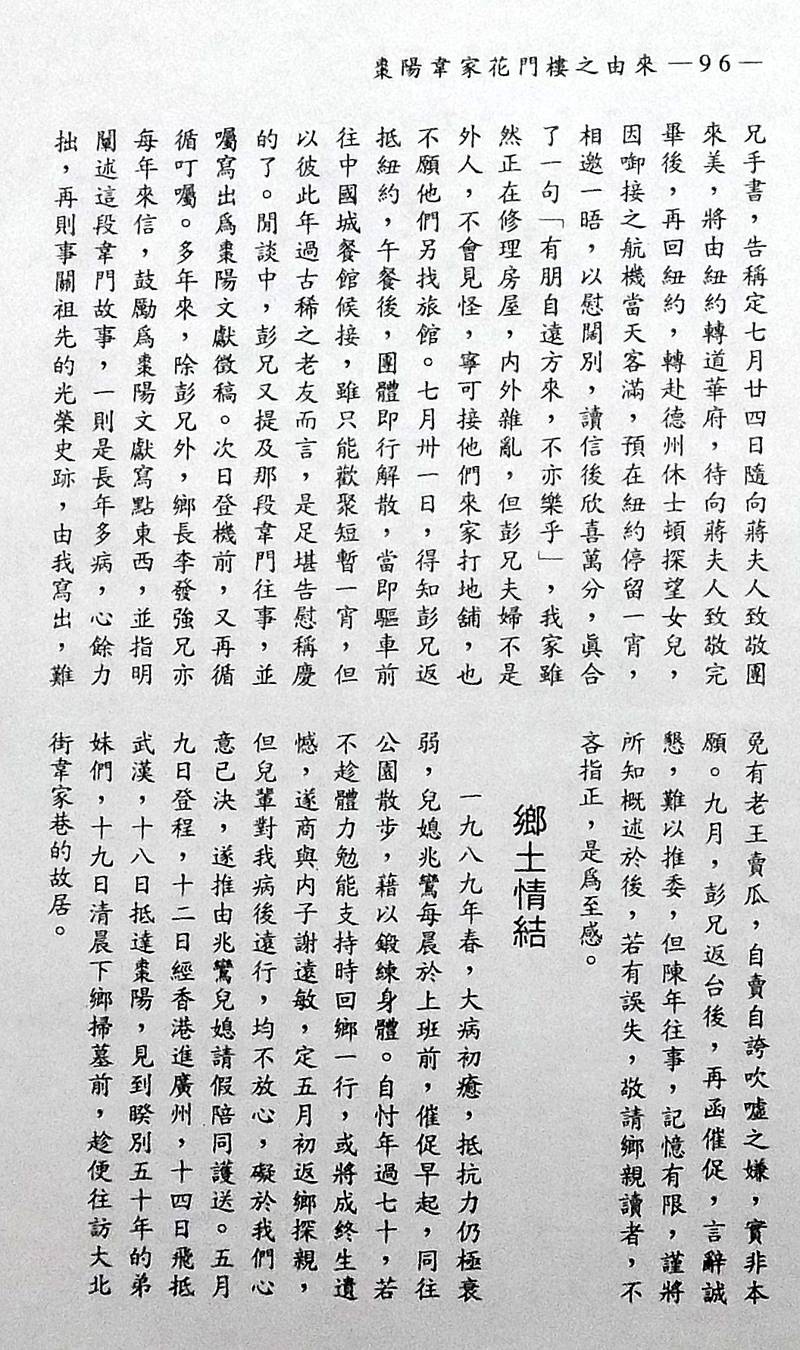 棗陽韋家花門樓之由來 —96—
兄手書，告稱定七月廿四日隨向蔣夫人致敬團
來美，將由紐約轉道華府，待向蔣夫人致敬完
畢後，再回紐約，轉赴德州休士頓探望女兒，
因啣接之航機當天客滿，預在紐約停留一宵，
相邀一晤，以慰闊別，讀信後欣喜萬分，眞合
了一句「有朋自遠方來，不亦樂乎」，我家雖
然正在修理房屋，内外雜亂，但彭兄夫婦不是
外人，不會見怪，寧可接他們來家打地舖，也
不願他們另找旅館。七月卅一日，得知彭兄返
抵紐約，午餐後，團體即行解散，當即驅車前
往中國城餐館候接，雖只能歡聚短暫一宵，但
以彼此年過古稀之老友而言，是足堪告慰稱慶
的了。閒談中，彭兄又提及那段韋門往事，並
囑寫出爲棗陽文獻徵稿。次日登機前，又再循
循叮囑。多年來，除彭兄外，鄉長李發強兄亦
每年來信，鼓勵爲棗陽文獻寫點東西，並指明
闡述這段韋門故事，一則是長年多病，心餘力
拙，再則事關祖先的光榮史跡，由我寫出，難
免有老王賣瓜，自賣自誇吹噓之嫌，實非本
願。九月，彭兄返台後，再函催促，言辭誠
懇，難以推委，但陳年往事，記憶有限，謹將
所知概述於後，若有誤失，敬請鄉親讀者，不
吝指正，是爲至感。
鄉土情結
一九八九年春，大病初癒，抵抗力仍極衰
弱，兒媳兆鸞每晨於上班前，催促早起，同往
公園散步，藉以鍛練身體。自忖年過七十，若
不趁體力勉能支持時回鄉一行，或將成終生遺
憾，遂商與内子謝遠敏，定五月初返鄉探親，
但兒輩對我病後遠行，均不放心，礙於我們心
意已決，遂推由兆鸞兒媳請假陪同護送。五月
九日登程，十二日經香港進廣州，十四日飛抵
武漢，十八日抵達棗陽，見到睽別五十年的弟
妹們，十九日清晨下鄉掃墓前，趁便往訪大北
街韋家巷的故居。